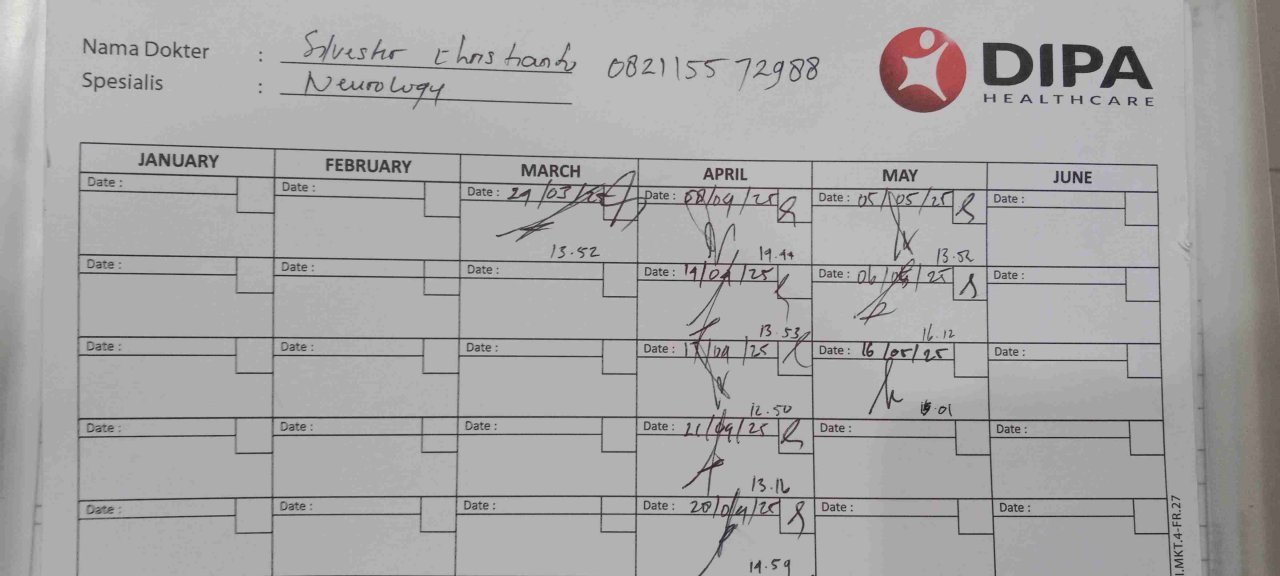 Nama Dokter : Silvester Christianto 082115572988
Spesialis : Neurology
DIPA
HEALTHCARE
JANUARY FEBRUARY MARCH APRIL MAY JUNE
Date : Date : Date : 24/03/25 Date : 08/04/25 Date : 05/05/25 Date :
13.52 14.44 13.52
Date : Date : Date : Date : 14/04/25 Date : 06/05/25 Date :
13.53 16.12
Date : Date : Date : Date : 17/04/25 Date : 16/05/25 Date :
12.50 15.01
Date : Date : Date : Date : 21/04/25 Date : Date :
13.16
Date : Date : Date : Date : 28/04/25 Date : Date :
14.59
I.MKT.4-FR.27